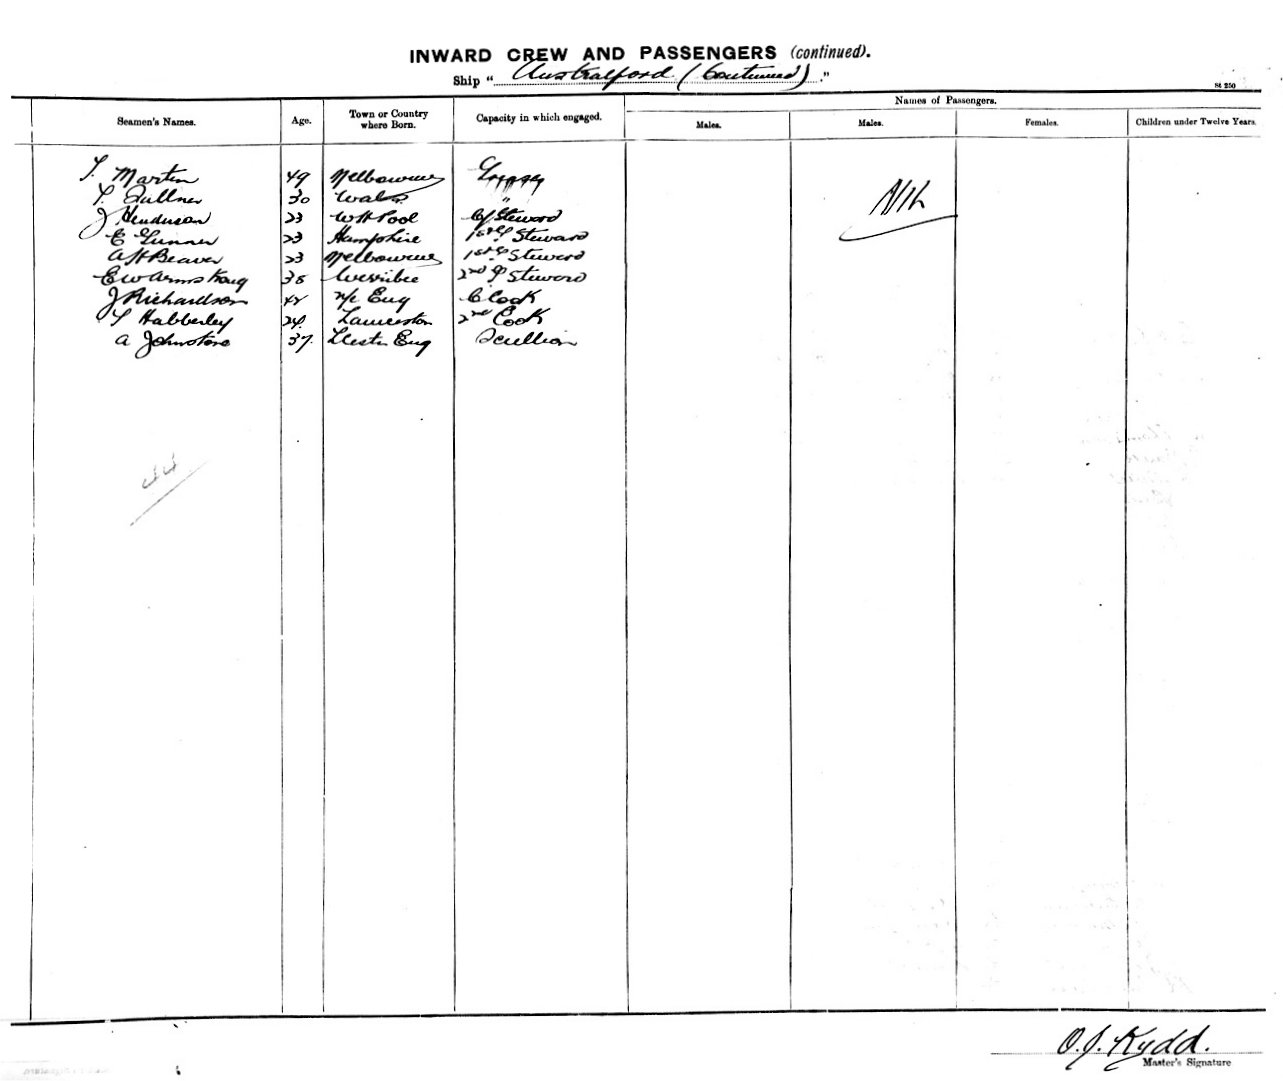 INWARD CREW AND PASSENGERS (continued).
Ship "Australford (Continued)."
St 250
Seamen's Names. Age. Town or Country where Born. Capacity in which engaged. Names of Passengers.
Males. Males. Females. Children under Twelve Years.
T. Martin 49 Melbourne Greaser
T. Fullner 30 Wales "
J Henderson 23 W H Pool Cf Steward
E Gunner 23 Hampshire 1st Steward
A H Beaver 23 Melbourne 1st Steward
E W Armstrong 38 Werribee 2nd Steward
J Richardson 42 N/c Eng C Cook
T Habberley 24 Launceston 2nd Cook
A Johnstone 37 Eng Scullion
Nil
O. J. Kydd.
Master's Signature